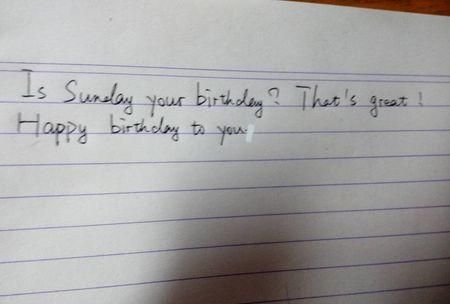 Is Sunday your birthday? That's great!
Happy birthday to you.